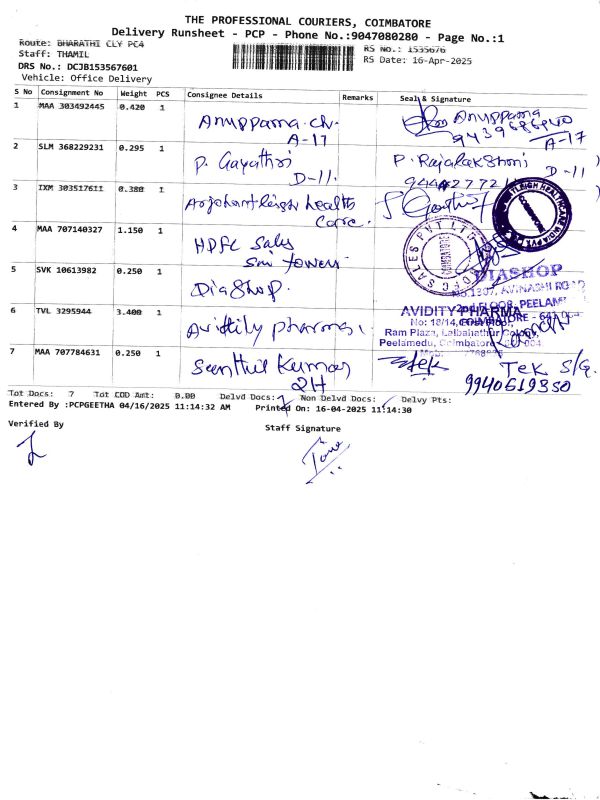 THE PROFESSIONAL COURIERS, COIMBATORE
Delivery Runsheet - PCP - Phone No.:9047080280 - Page No.:1
Route: BHARATHI CLY PC4
RS No.: 1535676
Staff: THAMIL
RS Date: 16-Apr-2025
DRS No.: DCJB153567601
Vehicle: Office Delivery
S No Consignment No Weight PCS Consignee Details Remarks Seal & Signature
1 MAA 303492445 0.420 1 Anuppama.ch. Anuppama
A-17 A-17
2 SLM 368229231 0.295 1 P. Gayathri P. Rajalakshmi
D-11. D-11
3 IXM 303517611 0.380 1 health
Care.
4 MAA 707140327 1.150 1 HDFC Sales
Sri towers
5 SVK 10613982 0.250 1 DiaShop. DIASHOP
No.1307, AVINASHI ROAD
2nd FLOOR, PEELAM
COIMBATORE - 641 004
6 TVL 3295944 3.400 1 pharma AVIDITY PHARMA
No: 18/14,
Ram Plaza, Lalbahathur Colony,
Peelamedu, Coimbatore
7 MAA 707784631 0.250 1 Senthil Kumar Tek S/G.
2H 9940619350
Tot Docs: 7 Tot COD Amt: 0.00 Delvd Docs: 7 Non Delvd Docs: Delvy Pts:
Entered By :PCPGEETHA 04/16/2025 11:14:32 AM Printed On: 16-04-2025 11:14:30
Verified By Staff Signature